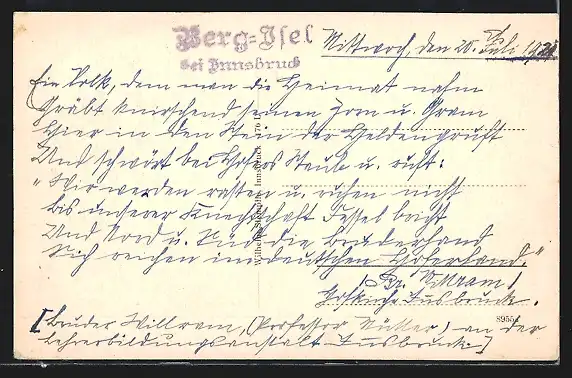 Berg=Isel
bei Innsbruck
Mittwoch, den 20. Juli 1921
Ein Volk, dem man die Heimat nahm
Gräbt knirschend seinen Zorn u. Gram
Hier in den Stein der Heldengruft
Und schwört bei Hofers Säule u. ruft:
"Wir werden rasten u. ruhen nicht
bis unserer Knechtschaft Fessel bricht
Und Nord u. Süd die Bruderhand
Sich reichen im deutschen Hoferland."
Br. Willram
Innsbruck.
[Bruder Willram, (Professor Müller) an der
Lehrerbildungsanstalt Innsbruck.]
Wilhelm Innsbruck
89554